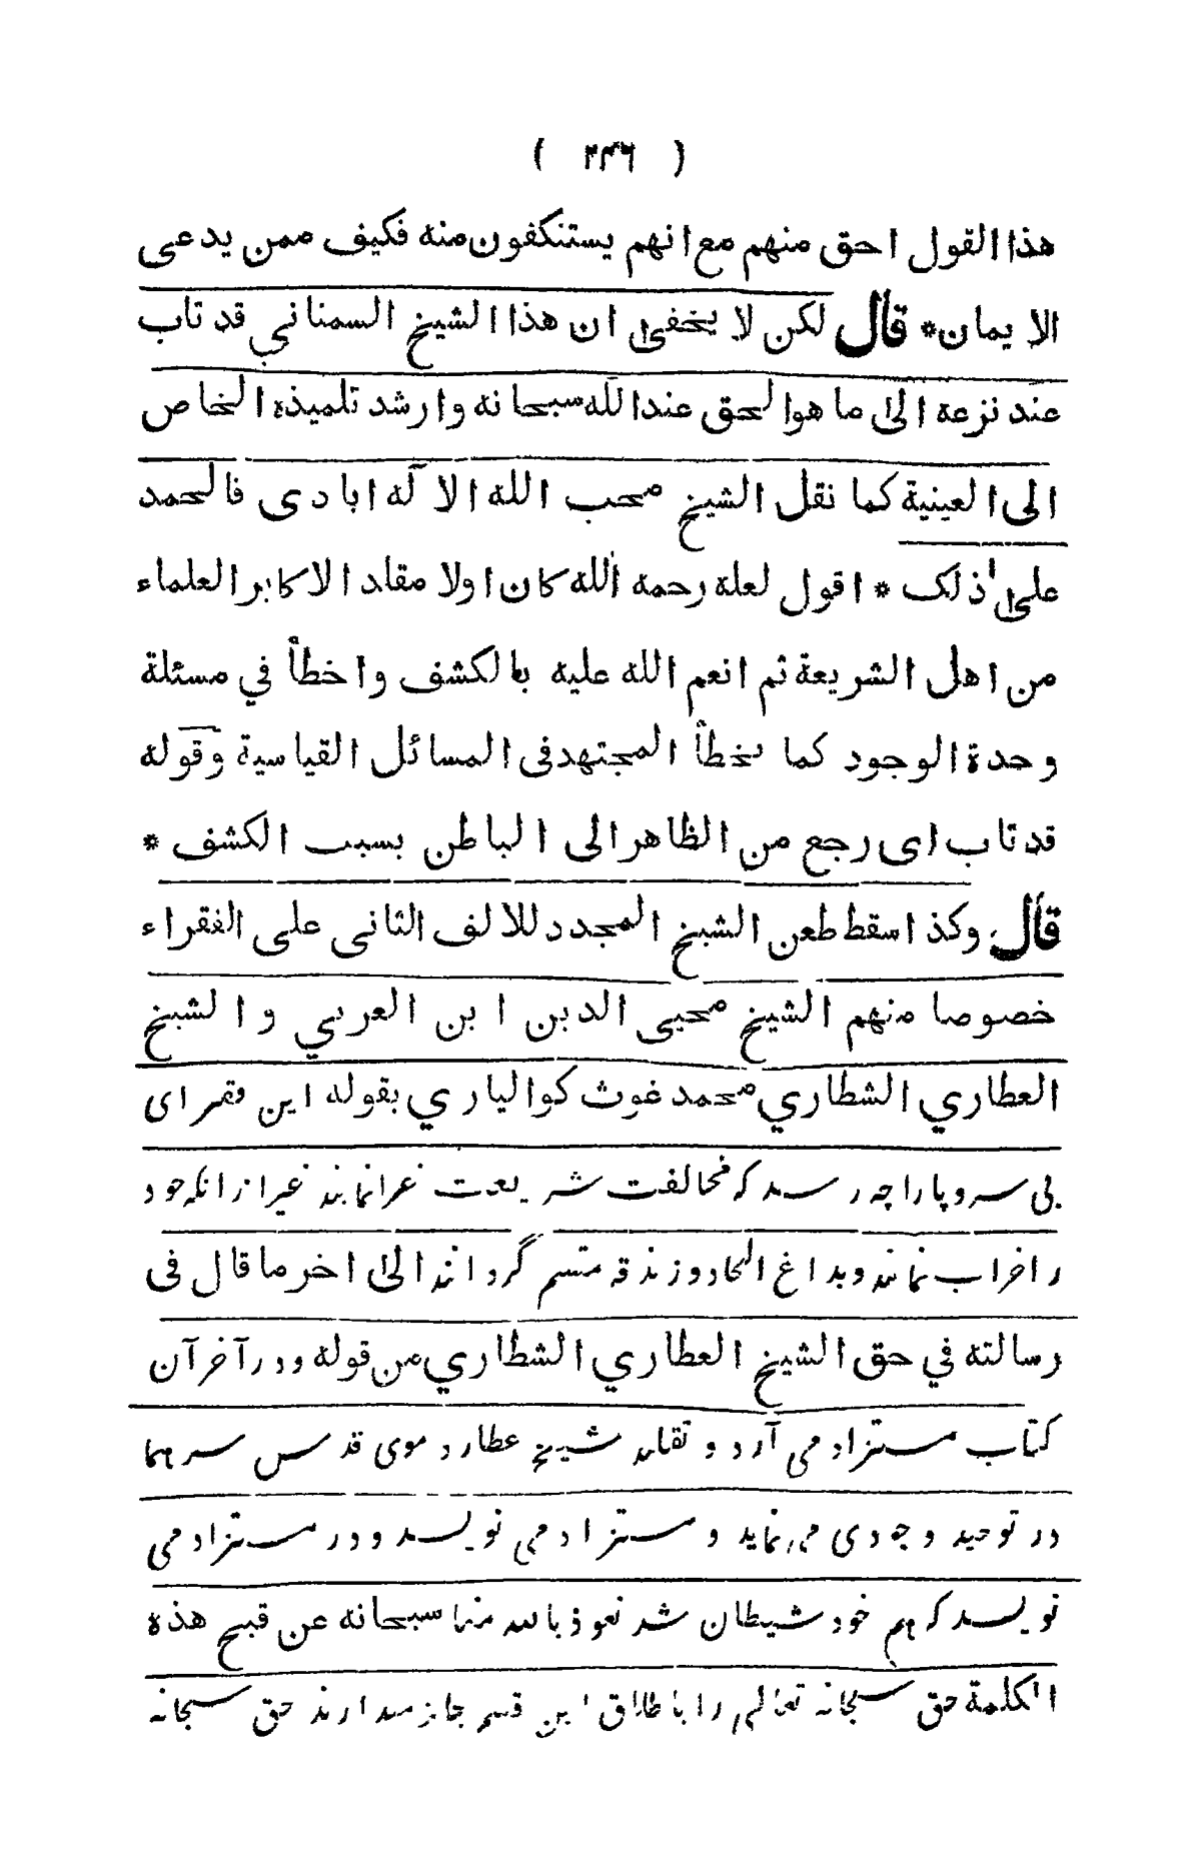 ( ۲۴۶ )
هذا القول احق منهم مع انهم يستنكفون منه فكيف ممن يدعى
الايمان * قال لكن لا يخفى ان هذا الشيخ السمناني قد تاب
عند نزعه الى ما هو الحق عند الله سبحانه وارشد تلميذه الخاص
الى العينية كما نقل الشيخ محب الله الاله ابادى فالحمد
على ذلك * اقول لعله رحمه الله كان اولا مقلد الاكابر العلماء
من اهل الشريعة ثم انعم الله عليه بالكشف واخطأ في مسئلة
وحدة الوجود كما يخطأ المجتهد فى المسائل القياسية وقوله
قد تاب اى رجع من الظاهر الى الباطن بسبب الكشف *
قال وكذا سقط طعن الشيخ المجدد للالف الثانى على الفقراء
خصوصا منهم الشيخ محيى الدين ابن العربي والشيخ
العطاري الشطاري محمد غوث كواليارى بقوله این فقرای
بی سروپا را چه رسد که مخالفت شریعت غرا نمایند غیر از انکه خود
را خراب نمایند و بداغ الحاد و زندقه متسم گردانند الى اخر ما قال فى
رسالته في حق الشيخ العطاري الشطاري من قوله ودر آخر آن
کتاب مستزاد می آرد و تقلید شیخ عطار و مولوی قدس سرهما
در توحید وجودی می نماید و مستزاد می نویسد و در مستزاد می
نویسد که هم خود شیطان شد نعوذ بالله منها سبحانه عن قبح هذه
الكلمة حق سبحانه تعالی را باطلاق این قسم جایز میدارند حق سبحانه